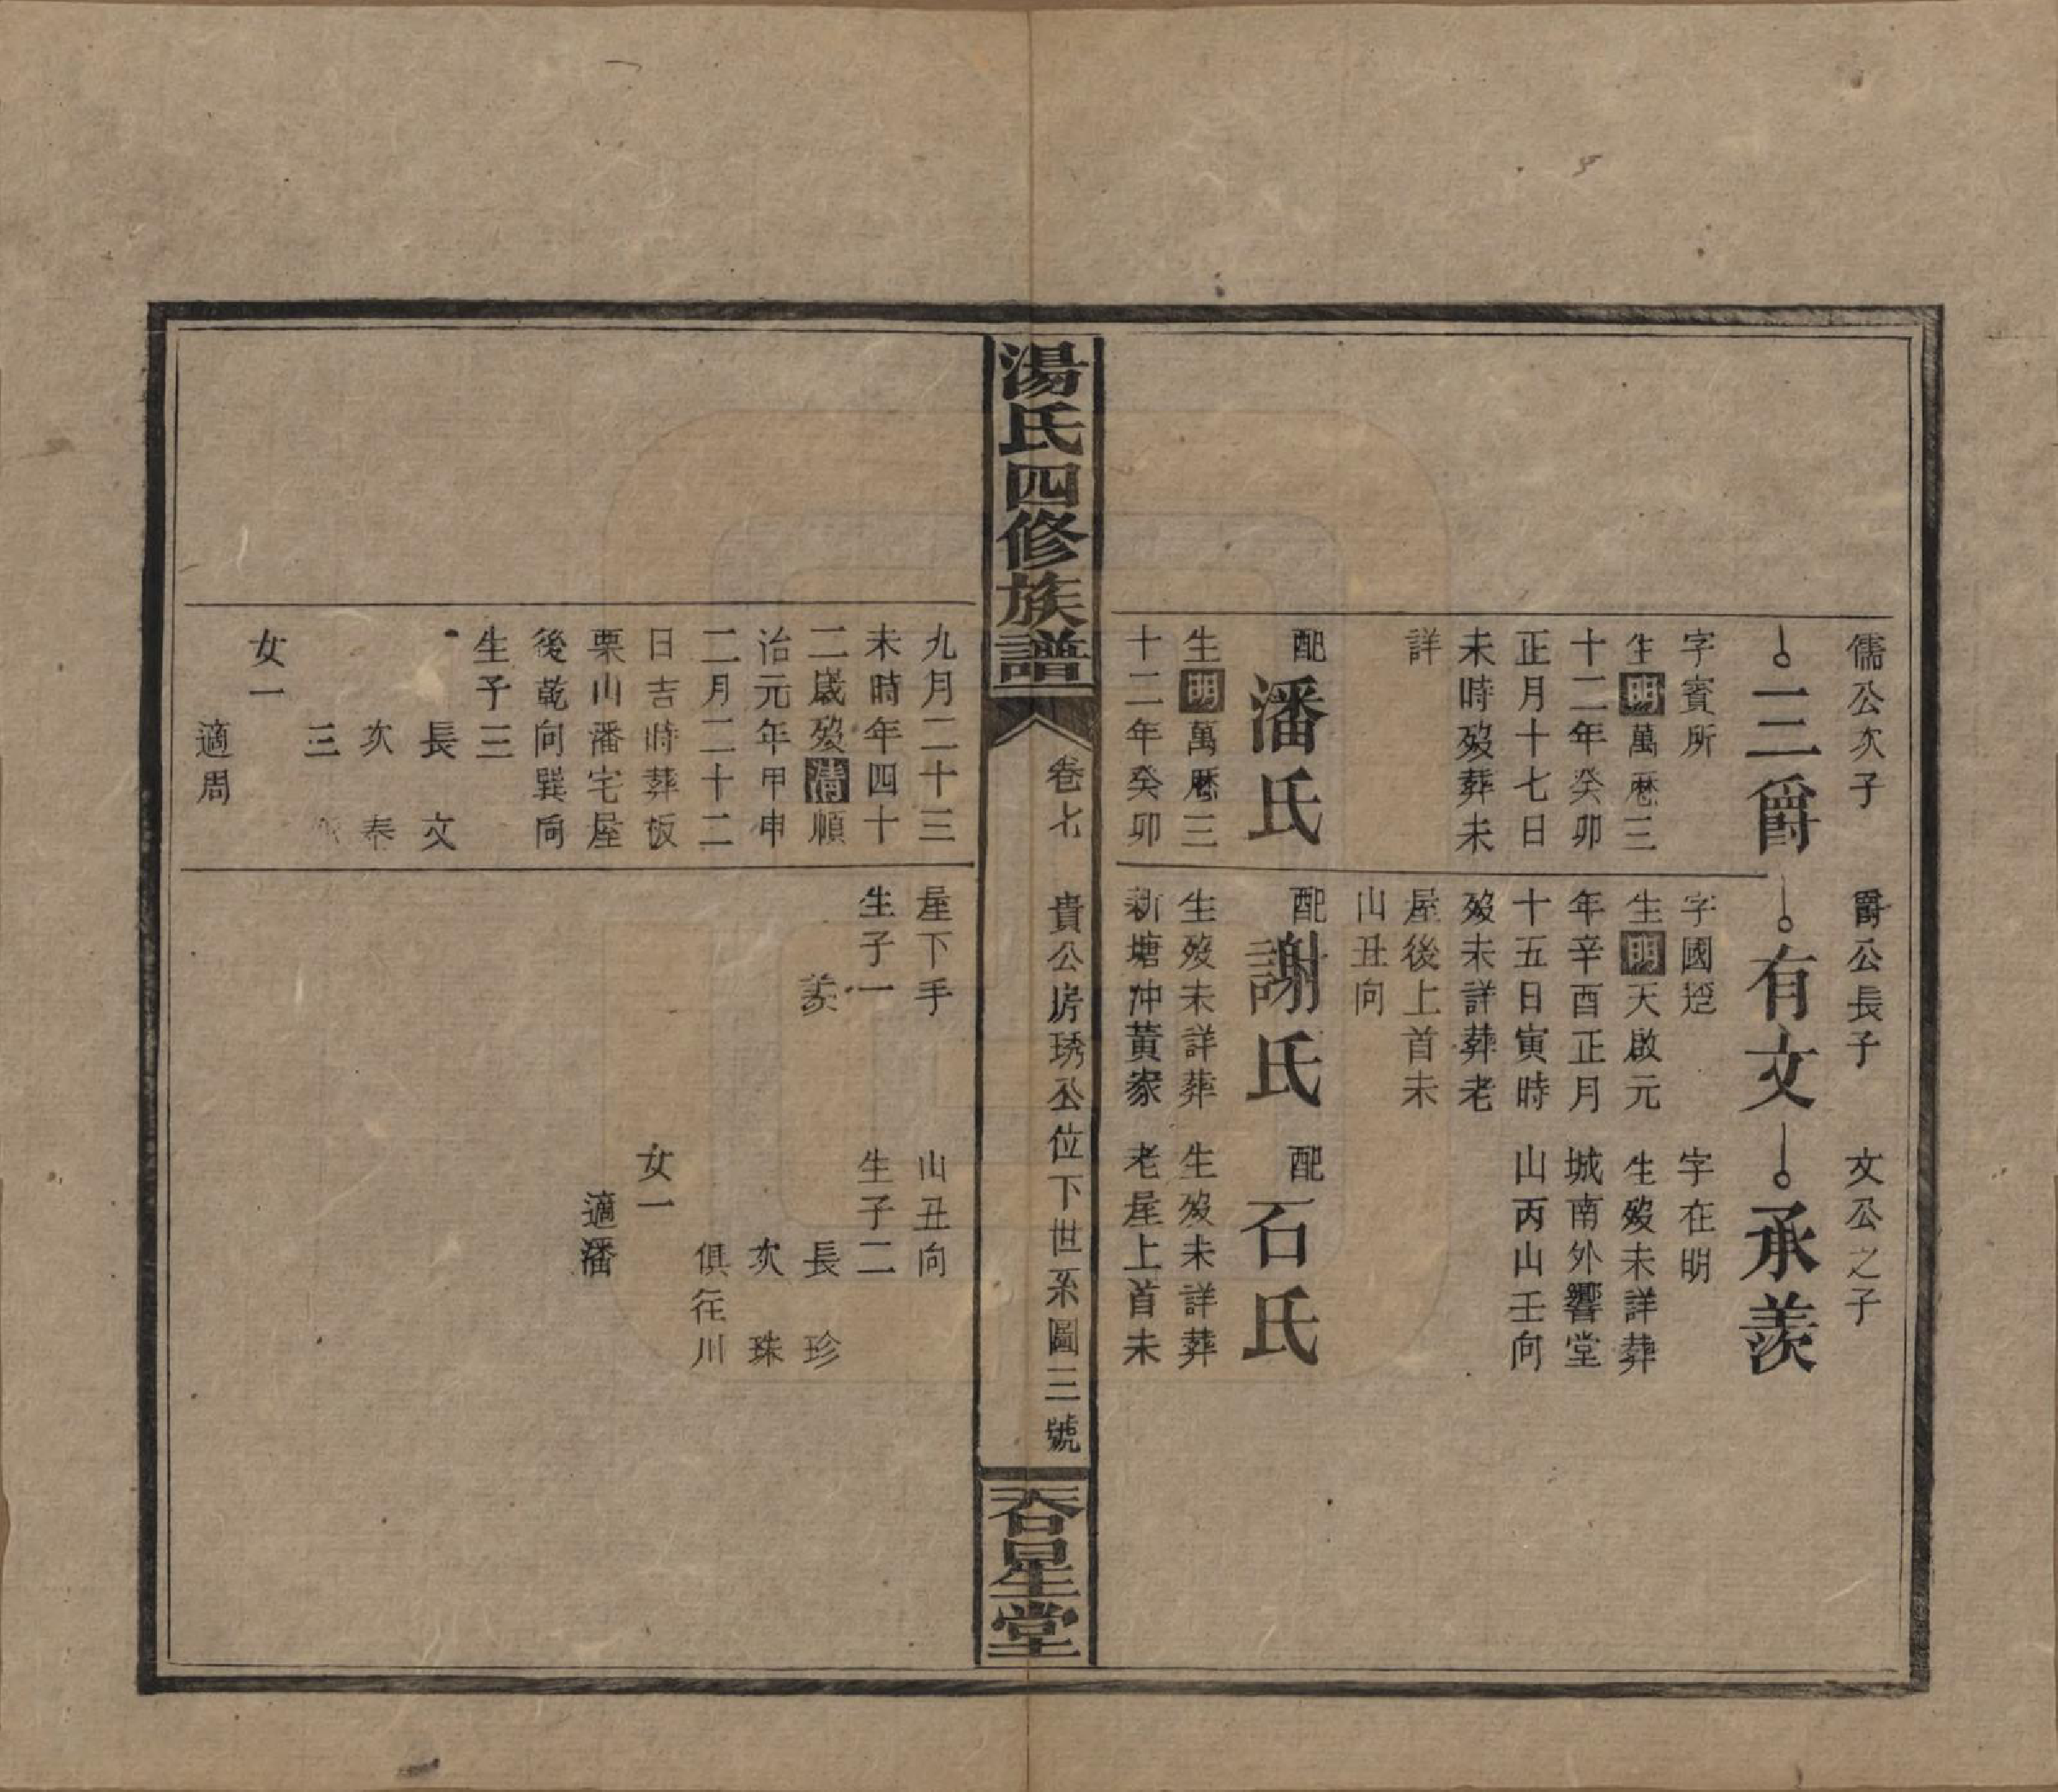 儒公次子
三爵
字賓所
生明萬厯三
十二年癸卯
正月十七日
未時歿葬未
詳
配
潘氏
生明萬厯三
十二年癸卯
爵公長子
有文
字國
生明天啟元
年辛酉正月
十五日寅時
歿未詳葬老
屋後上首未
山丑向
配
謝氏
生歿未詳葬
新塘冲黃家
文公之子
承羨
字在明
生歿未詳葬
城南外響堂
山丙山壬向
配
石氏
生歿未詳葬
老屋上首未
湯氏四修族譜
卷七
貴公房琇公位下世系圖三號
吞星堂
九月二十三
未時年四十
二歲歿清順
治元年甲申
二月二十二
日吉時葬板
栗山潘宅屋
後乾向巽向
生子三
長 文
次 奉
三
女一
適周
屋下手
生子一
羨
山丑向
生子二
長 珍
次 珠
俱徃川
女一
適潘